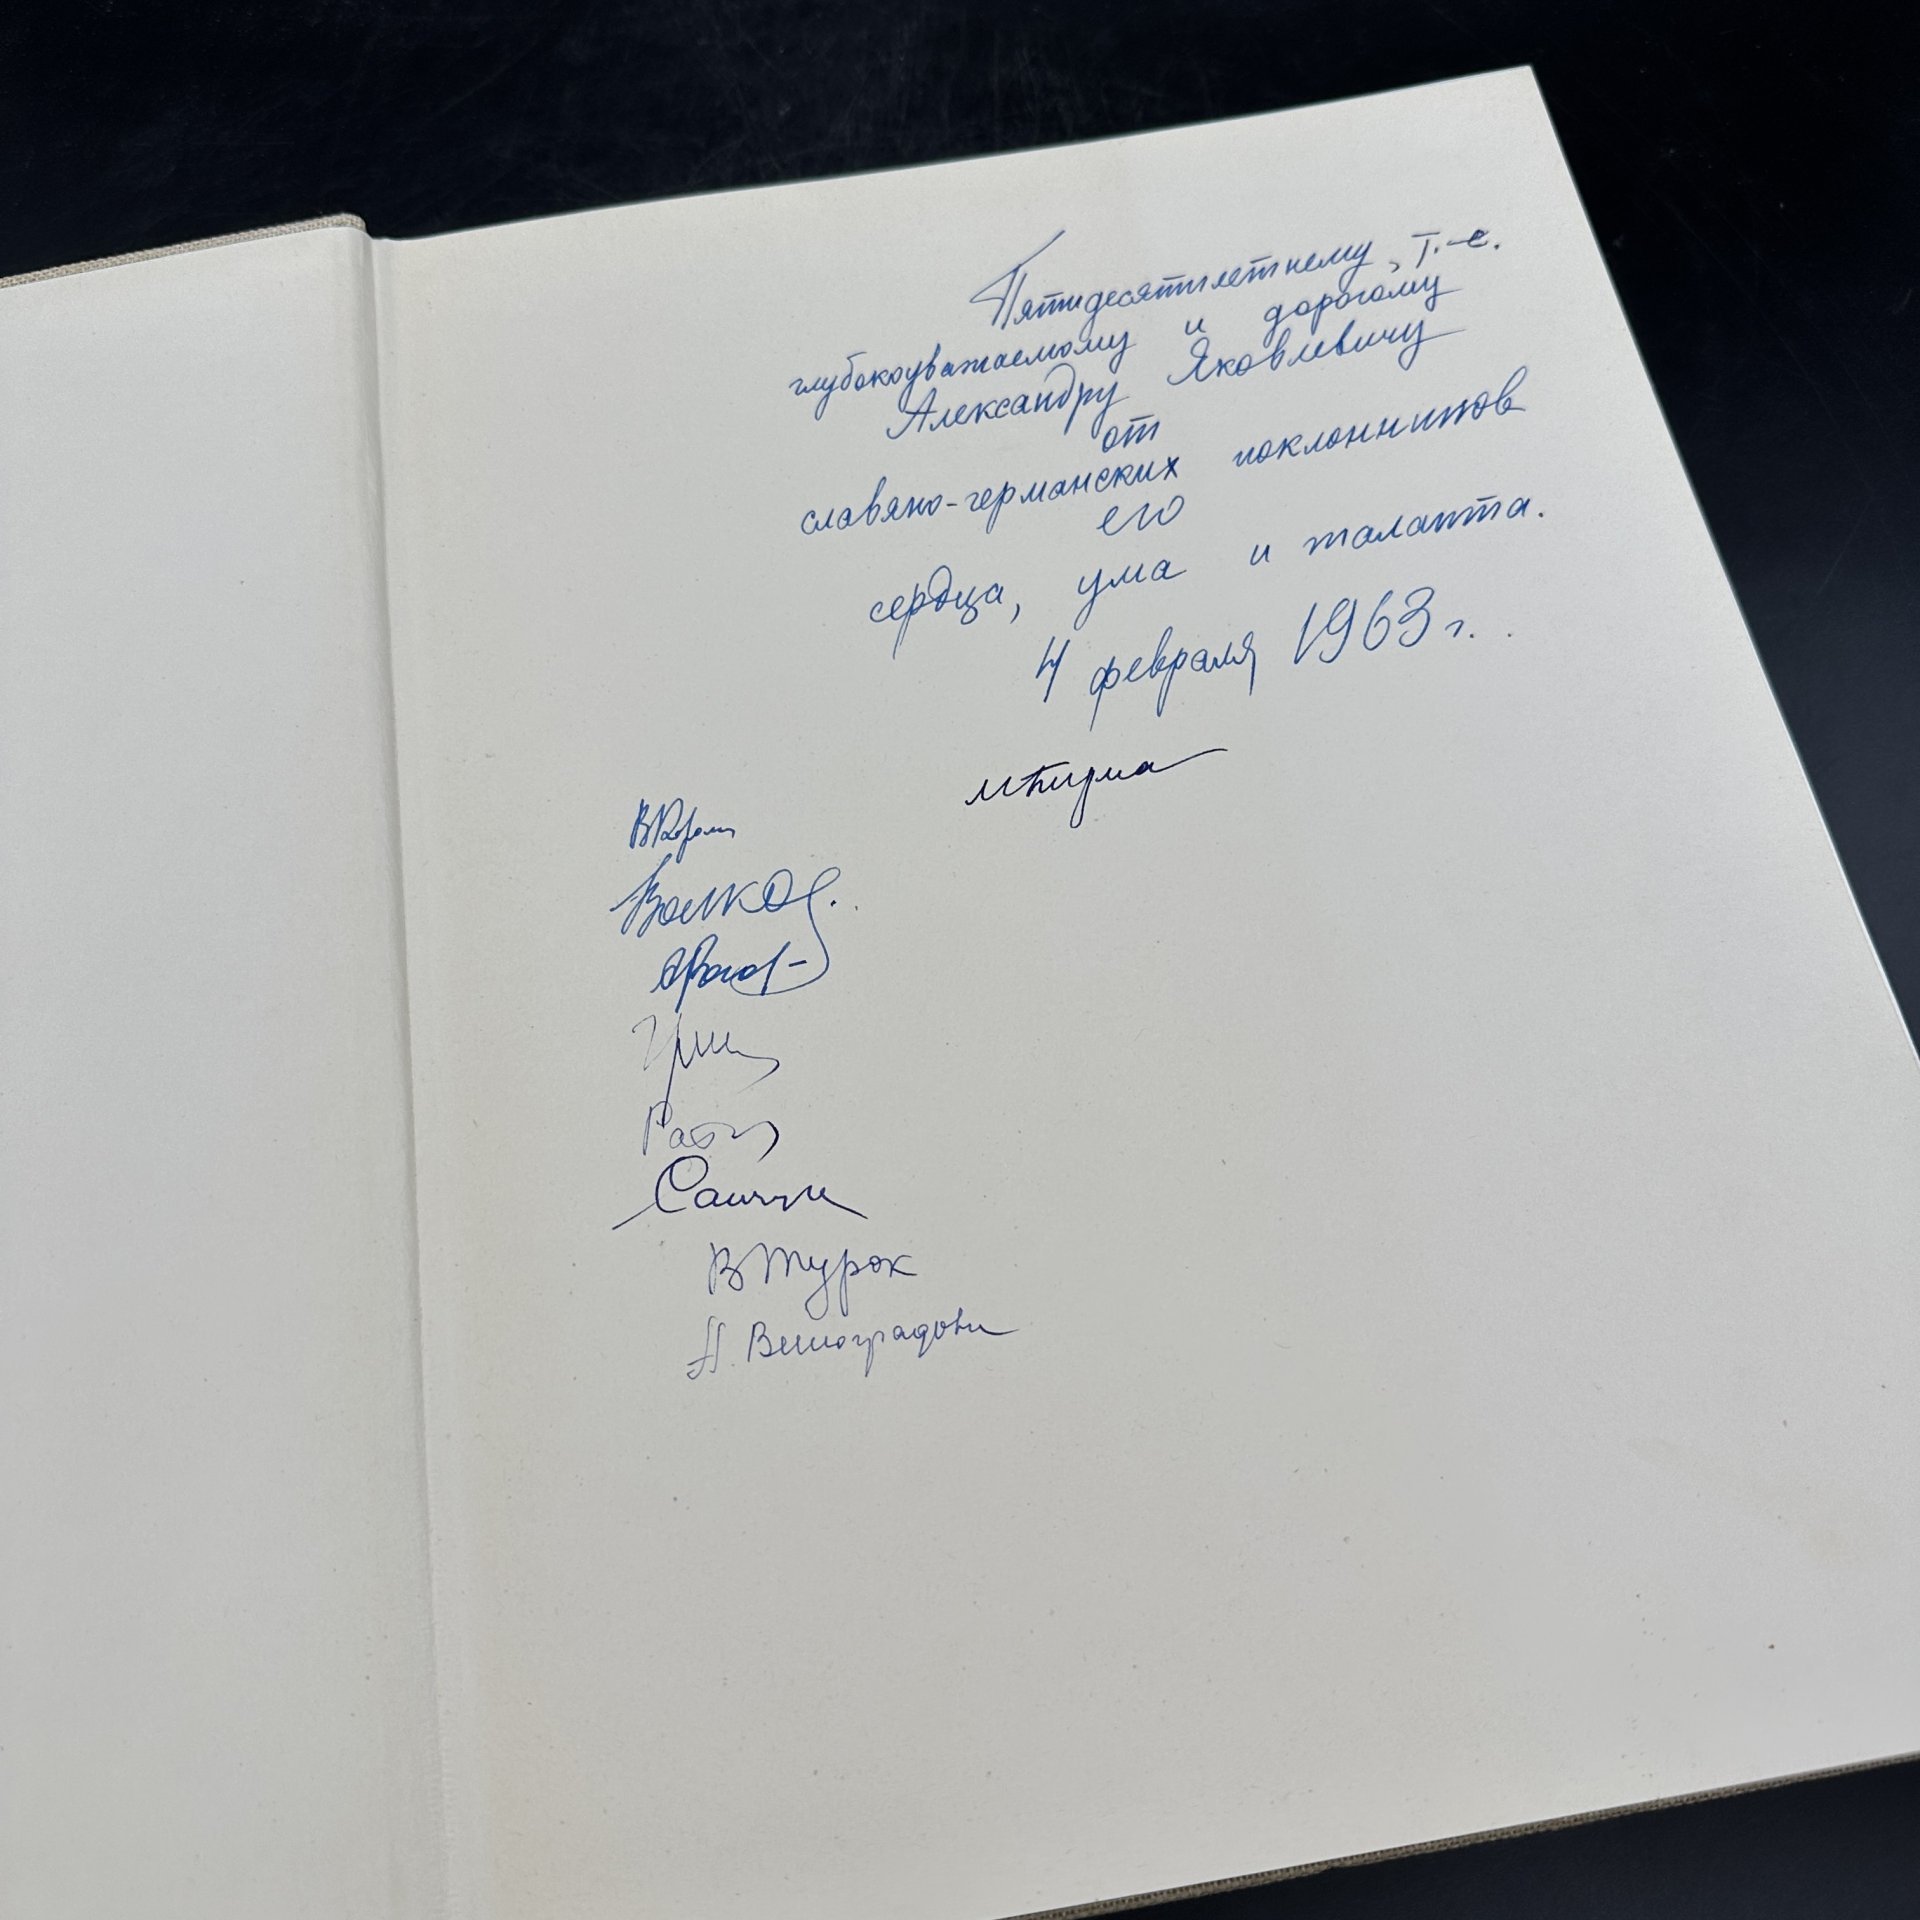 Пятидесятилетнему, т.-е.
глубокоуважаемому и дорогому
Александру Яковлевичу
от
славяно-германских поклонников
его
сердца, ума и таланта.
4 февраля 1963 г.
Волков.
В Турок
Виноградова